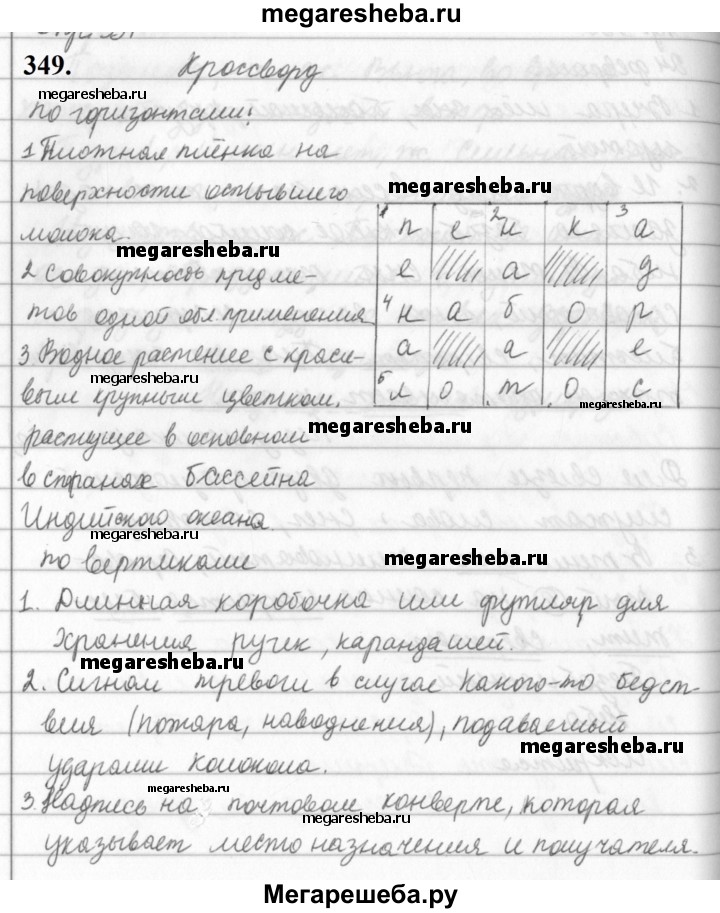 megaresheba.ru
349. Кроссворд
megaresheba.ru
по горизонтали:
1 Плотная плёнка на
поверхности остывшего
megaresheba.ru
молока.
megaresheba.ru
2 Совокупность предме-
тов одной обл. применения
3 Водное растение с краси-
megaresheba.ru
вым крупным цветком,
растущее в основном
в странах бассейна
Индийского океана.
1 п е 2 н к 3 а
е а д
4 н а б о р
а а е
5 л о т о с
megaresheba.ru
megaresheba.ru
megaresheba.ru
по вертикали
megaresheba.ru
1. Длинная коробочка или футляр для
хранения ручек, карандашей.
megaresheba.ru
2. Сигнал тревоги в случае какого-то бедст-
вия (пожара, наводнения), подаваемый
megaresheba.ru
ударами колокола.
megaresheba.ru
3. Надпись на почтовом конверте, которая
указывает место назначения и получателя.
Мегарешеба.ру